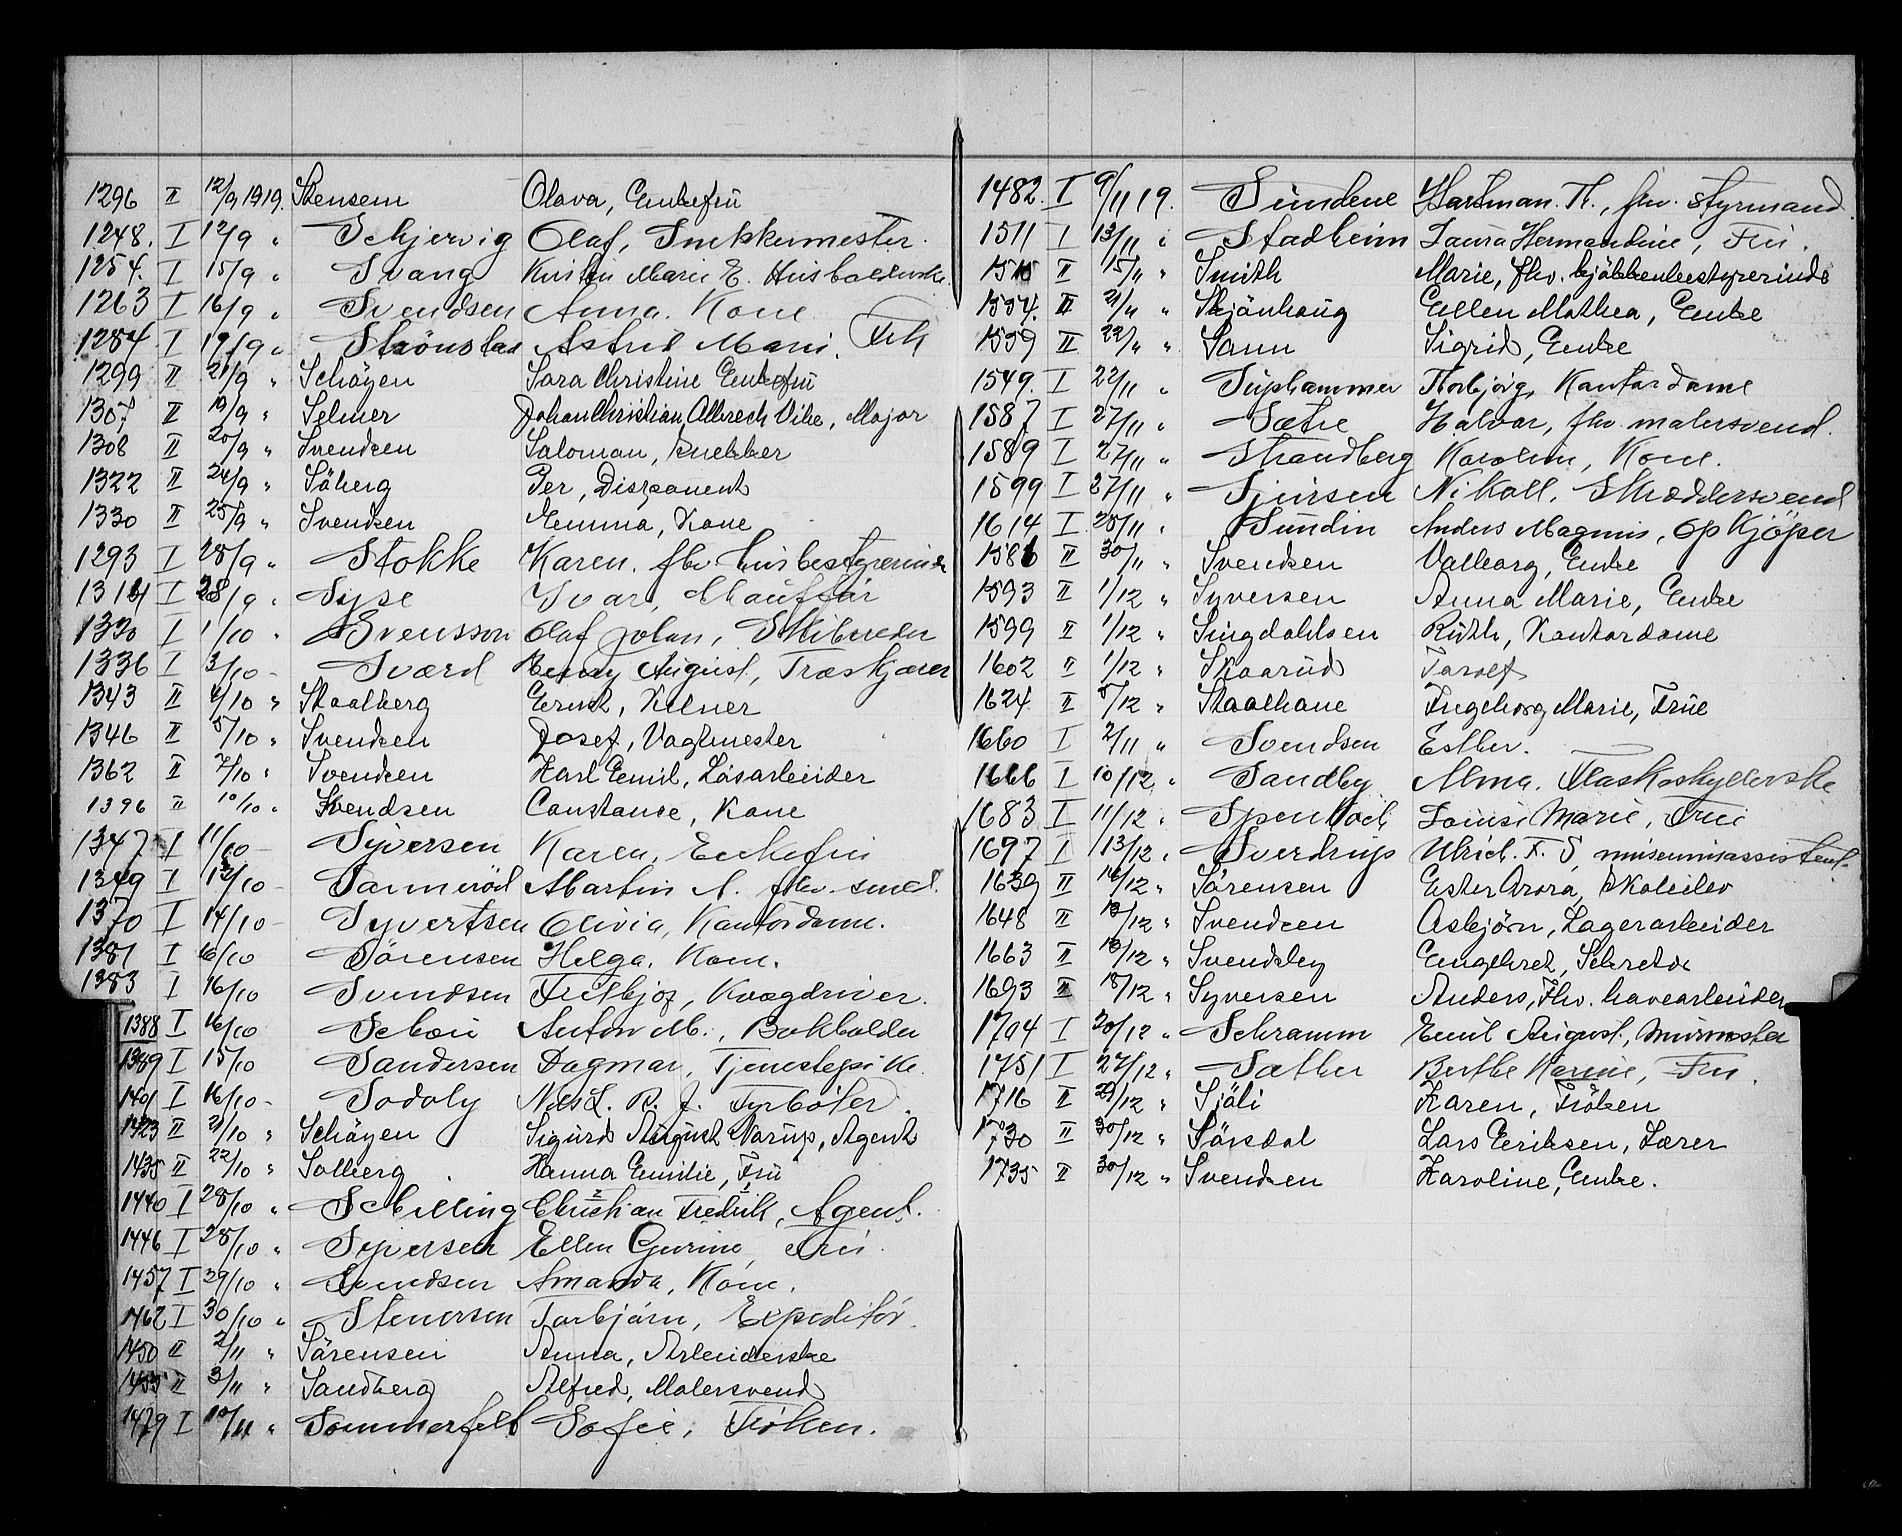 1296 II 12/9 1919. Stensen Olava, Enkefrü
1248. I 12/9 " Schjervig Olaf, Snekkermester.
1254. I 15/9 " Svang Kirsten Marie E.
1263 I 16/9 " Svendsen Anna. Kone
1284 I 19/9 " Astrid Marie. Frk
1299 II 21/9 " Schöyen Sara Christine Enkefrü
1307 II 19/9 " Selmer Johan Christian Albrech Vibe, Major
1308 II 20/9 " Svendsen Saloman, Snekker
1322 II 24/9 " Söberg Per, Disponent
1330 II 25/9 " Svendsen Emma, Kone
1293 I 28/9 " Stokke Karen. fhv. husbestyrerinde
1314 I 28/9 " Syse Ivar, Chauffør
1330 I 1/10 " Svensson Olaf Johan, Skibsreder
1336 I 3/10 - Sværd August, Træskjærer
1343 II 4/10 " Staalberg Ernst, Kelner
1346 II 5/10 " Svendsen Josef, Vagtmester
1362 II 7/10 " Svendsen Karl Emil, Lösarbeider
1396 II 10/10 " Svendsen Constance, Kone
1347 I 11/10 - Syversen Karen, Enkefrü
1349 I 12/10 - Sanneröd Martin A. fhv. smed.
1370 I 14/10 - Syvertsen Olivia, Kontordame.
1381 I 16/10 Sörensen Helga. Kone.
1383 I 16/10 Svendsen Fritbjof, Kvægdriver.
1388 I 16/10 Schou Anton M., Bokholder
1389 I 15/10 Sandersen Dagmar, Tjenestepike
1401 I 16/10 - Sodoly Nils L. R. J. Fyrböter.
1423 II 21/10 " Schöyen Sigurd August Narup, Agent
1435 II 22/10 " Solberg Hanna Emilie, Frü
1440 I 28/10 " Schilling Christian Fredrik, Agent.
1446 I 28/10 " Syversen Ellen Gurine, Frü.
1457 I 29/10 " Svendsen Amanda, Kone.
1462 I 30/10 " Stenersen Torbjörn, Expeditör.
1450 II 2/11 " Sörensen Anna, Arbeiderske
1455 II 3/11 " Sandberg Alfred, Malersvend
1479 I 10/11 " Sommerfelt Sofie, Fröken.
1482. I 9/11 19. Sundene Hartman. Th., fhv. styrmand.
1511 I 13/11 " Stadheim Laura Hermandine, Frü.
1515 II 15/11 " Smith Marie, fhv. kjökkenbestyrerinde
1534. II 21/11 " Skjönhaug Ellen Mathea, Enke
1539 II 22/11 " Sann Sigrid, Enke
1549. I 22/11 " Suphammer Torbjörg, Kontordame
1587 I 27/11 " Sætre Halvor, fhv. malersvend.
1589 I 27/11 " Strandberg Karoline, Kone.
1599 I 27/11 " Sjursen Nikoll. Skræddersvend
1614 I 28/11 " Sundin Anders Magnus, Opkjöper
1586 II 30/11 " Svendsen Valborg, Enke
1593 II 1/12 " Syversen Anna Marie, Enke
1599 II 1/12 " Singdahlsen Rüth, Kontordame
1602 II 1/12 " Skaarud Tarolf
1624 II 5/12 " Staalhane Ingeborg Marie, Früe
1660 I 2/11 " Svendsen Esther.
1666 I 10/12. " Sandby Alma. Flaskeskyllerske
1683 I 11/12 " Louise Marie, Frü
1697 I 13/12 " Sverdrup Ulrich. F. S, museumsassistent.
1639 II 16/12 " Sörensen Ester Arora, Skoleelev
1648 II 18/12 " Svendsen Asbjörn, Lagerarbeider
1663 II 18/12 " Svendsby Engebret, Sekretær
1693 II 18/12 " Syversen Anders, Fhv. havearbeider
1704 I 20/12 " Schramm Emil August., Murmester
1751 I 27/12 " Sather Berthe Karine, Frü.
1716 II 29/12 " Sjöli Karen, Fröken
1730 II 30/12 " Sörsdal Lars Eriksen, Lærer
1735 II 30/12 " Svendsen Karoline, Enke.